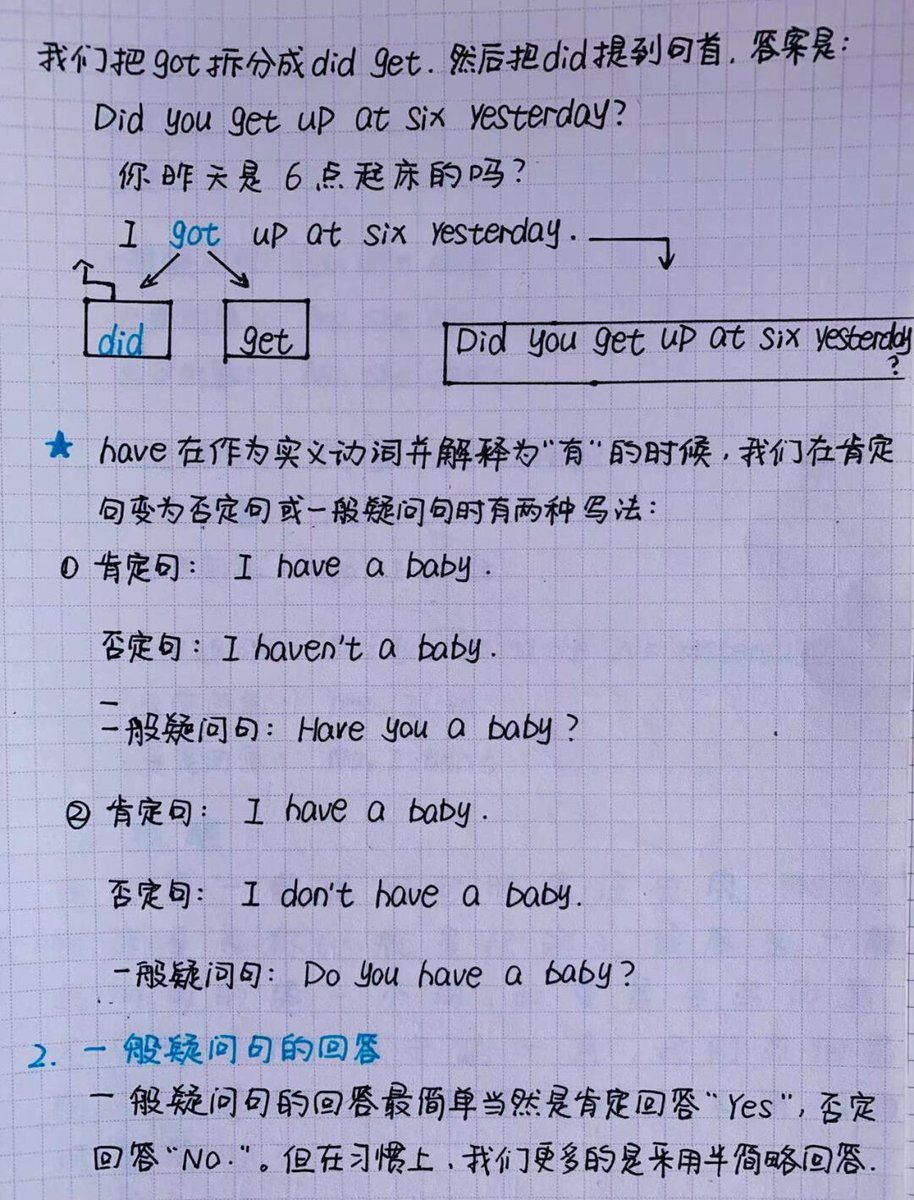 我们把got拆分成did get. 然后把did提到句首, 答案是:
Did you get up at six yesterday?
你昨天是6点起床的吗?
I got up at six yesterday.
did get
Did you get up at six yesterday
?
★ have在作为实义动词并解释为"有"的时候, 我们在肯定
句变为否定句或一般疑问句时有两种写法:
① 肯定句: I have a baby.
否定句: I haven't a baby.
一般疑问句: Have you a baby?
② 肯定句: I have a baby.
否定句: I don't have a baby.
一般疑问句: Do you have a baby?
2. 一般疑问句的回答
一般疑问句的回答最简单当然是肯定回答"Yes", 否定
回答"No."。但在习惯上, 我们更多的是采用半简略回答.